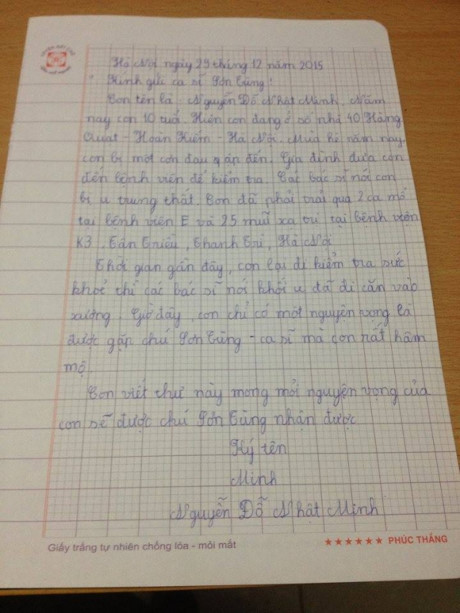 Hà Nội ngày 25 tháng 12 năm 2015
Kính gửi ca sĩ Sơn Tùng!
Con tên là Nguyễn Đỗ Nhật Minh. Năm
nay con 10 tuổi. Hiện con đang ở số nhà 40 Hàng
Quạt - Hoàn Kiếm - Hà Nội. Mùa hè năm nay,
con bị một cơn đau dẫn đến. Gia đình đưa con
đến bệnh viện để kiểm tra. Các bác sĩ nói con
bị u trung thất. Con đã phải trải qua 2 ca mổ
tại bệnh viện E và 25 mũi xạ trị tại bệnh viện
K3, Tân Triều, Thanh Trì, Hà Nội
Thời gian gần đây, con lại đi kiểm tra sức
khoẻ thì các bác sĩ nói khối u đã di căn vào
xương. Giờ đây, con chỉ có một nguyện vọng là
được gặp chú Sơn Tùng - ca sĩ mà con rất hâm
mộ.
Con viết thư này mong mỏi nguyện vọng của
con sẽ được chú Sơn Tùng nhận được
Ký tên
Minh
Nguyễn Đỗ Nhật Minh
Giấy trắng tự nhiên chống lóa - mỏi mắt
★★★★★★ PHÚC THẮNG